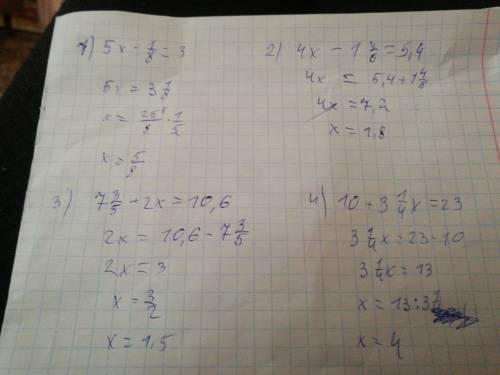 1) 5x - 1/8 = 3
5x = 3 1/8
x = 25/8 · 1/5
x = 5/8
2) 4x - 1 4/5 = 5,4
4x = 5,4 + 1 4/5
4x = 7,2
x = 1,8
3) 7 3/5 + 2x = 10,6
2x = 10,6 - 7 3/5
2x = 3
x = 3/2
x = 1,5
4) 10 + 3 1/4x = 23
3 1/4x = 23 - 10
3 1/4x = 13
x = 13 : 3 1/4
x = 4